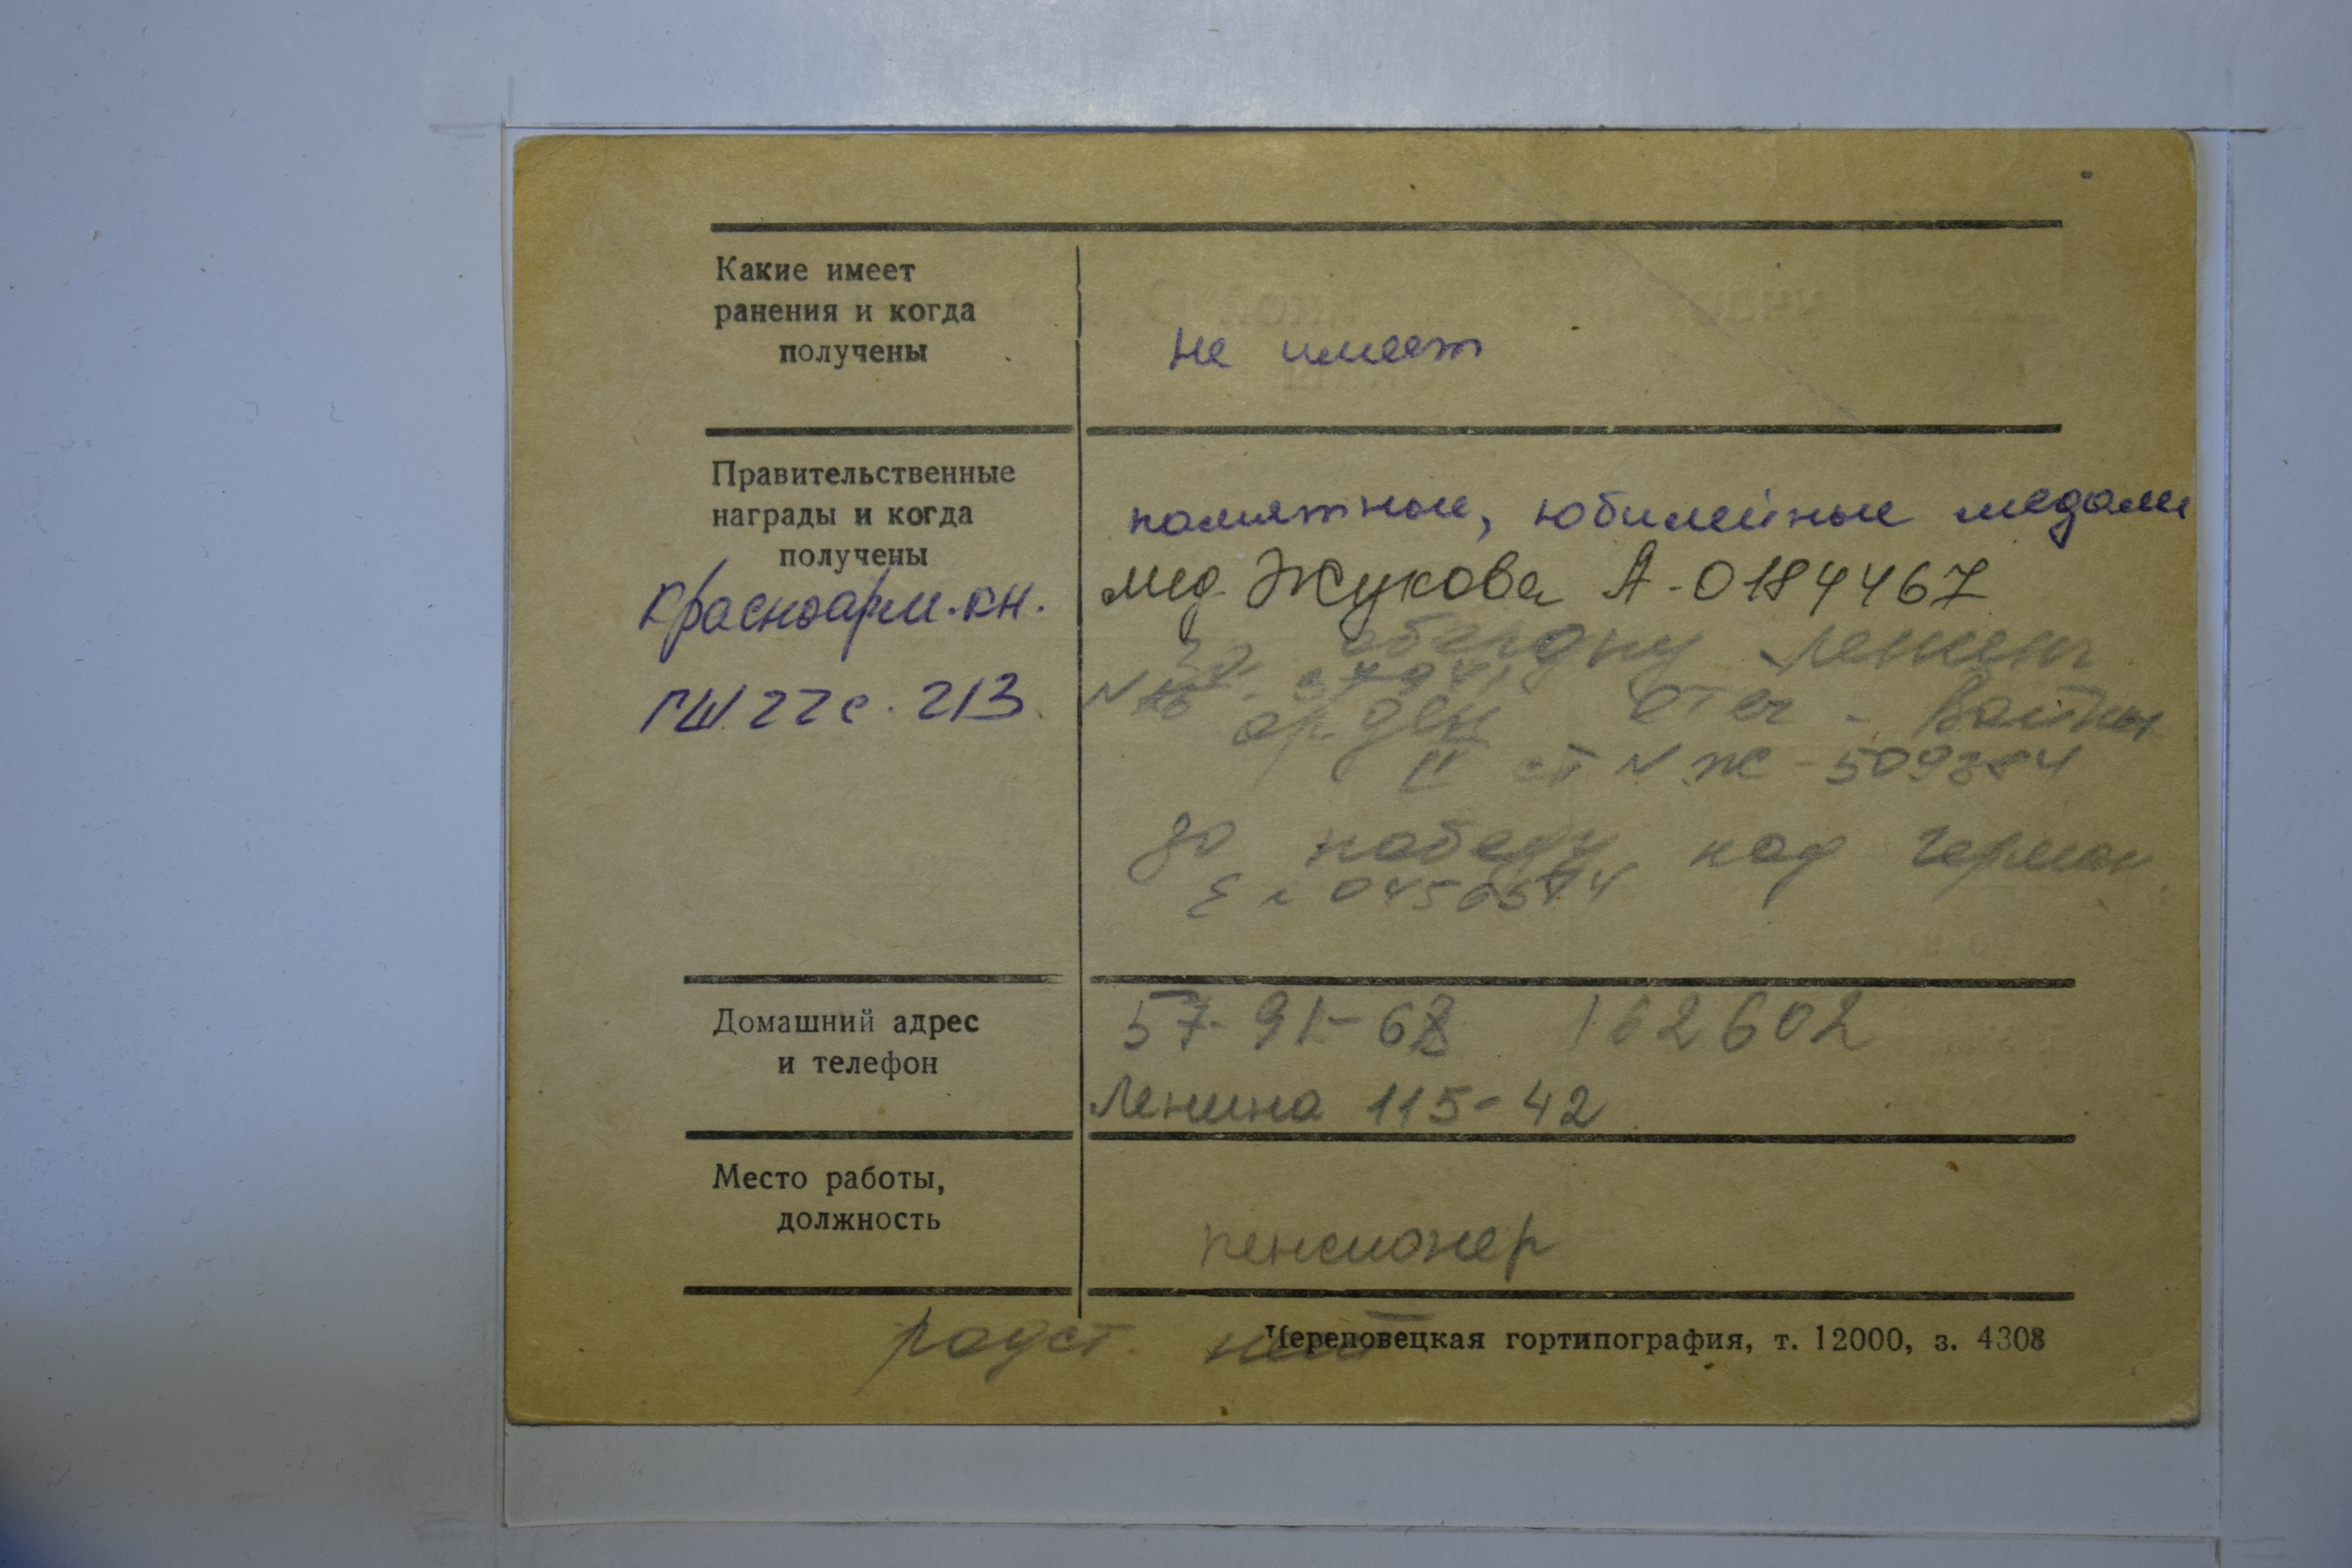 Какие имеет
ранения и когда
получены
не имеет
Правительственные
награды и когда
получены
Красноарм. кн.
ГШ 22 с. 213
памятные, юбилейные медали
мед. Жукова А-0184467
за
орден Отеч. Войны
II ст N Ж-509384
за победу над герман
Домашний адрес
и телефон
57-91-62 162602
Ленина 115-42
Место работы,
должность
пенсионер
родст. нет
Череповецкая гортипография, т. 12000, з. 4308